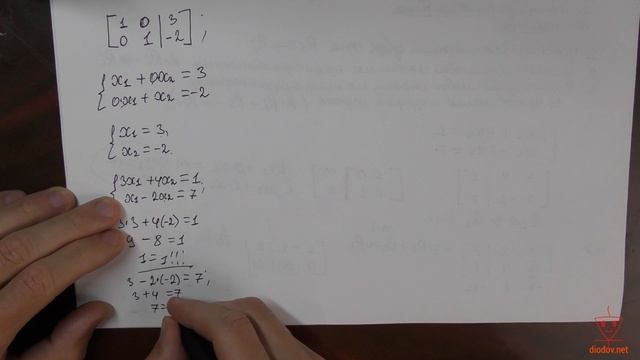 [1 0 | 3
0 1 | -2];
{x₁ + 0x₂ = 3
0x₁ + x₂ = -2
{x₁ = 3,
x₂ = -2.
{3x₁ + 4x₂ = 1,
x₁ - 2x₂ = 7;
3·3 + 4(-2) = 1
9 - 8 = 1
1 = 1!!!
3 - 2·(-2) = 7;
3 + 4 = 7
7 =
diodov.net